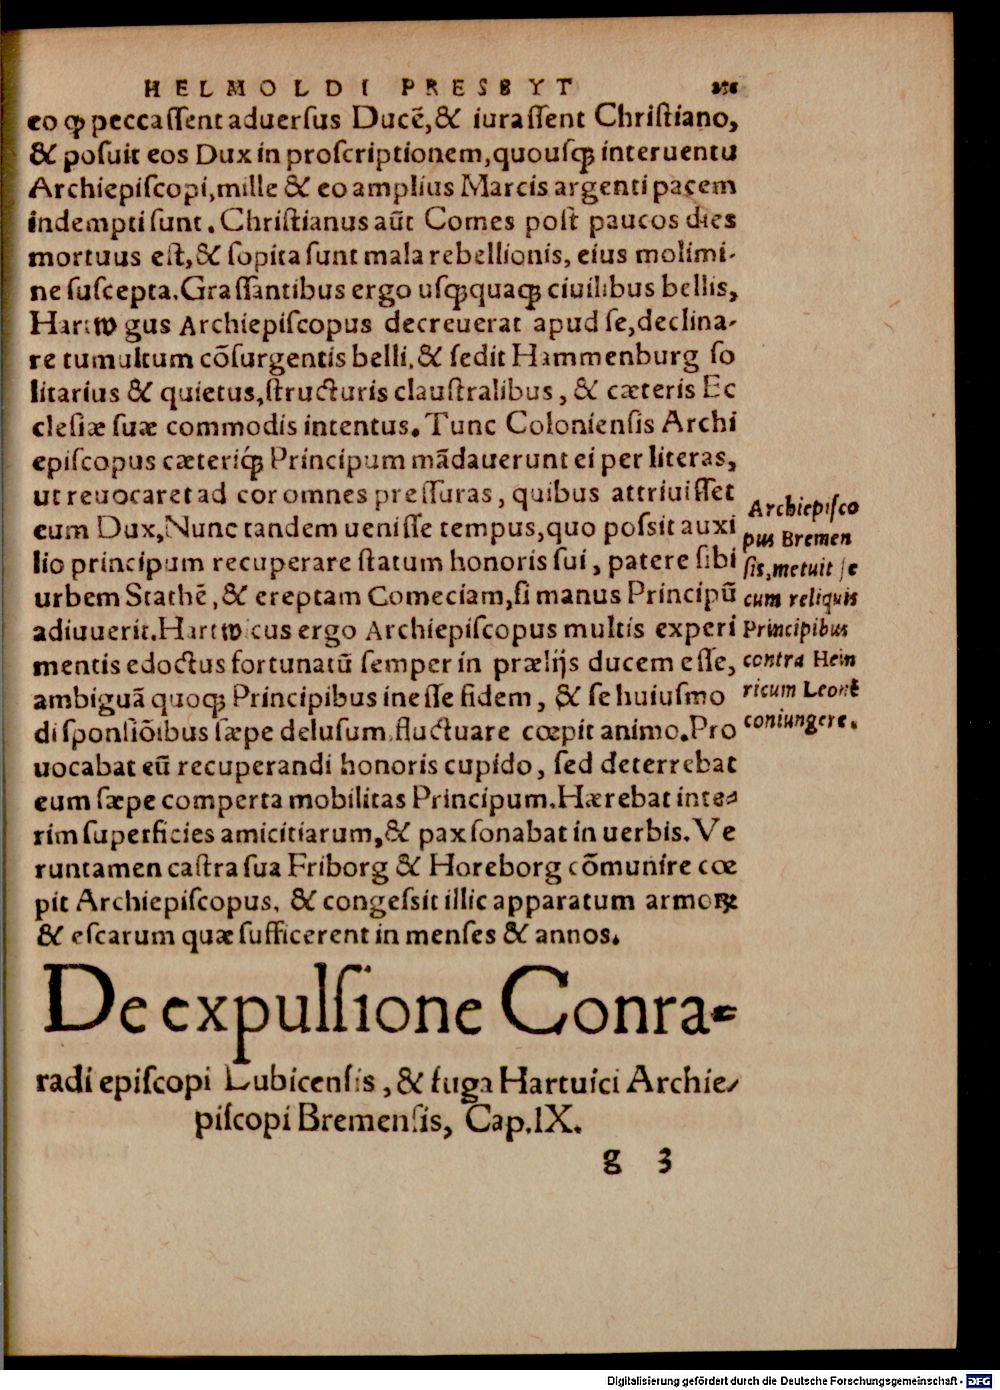 HELMOLDI PRESBYT
eo ꝙ peccaſſent aduerſus Ducē, & iuraſſent Chriſtiano,
& poſuit eos Dux in proſcriptionem, quouſqꝫ interuentu
Archiepiſcopi, mille & eo amplius Marcis argenti pacem
indempti ſunt. Chriſtianus aūt Comes poſt paucos dies
mortuus eſt, & ſopita ſunt mala rebellionis, eius molimi-
ne ſuſcepta. Graſſantibus ergo uſqꝫquaqꝫ ciuilibus bellis,
Hartwgus Archiepiſcopus decreuerat apud ſe, declina-
re tumultum cōſurgentis belli, & ſedit Hammenburg ſo
litarius & quietus, ſtructuris clauſtralibus, & cæteris Ec
cleſiæ ſuæ commodis intentus. Tunc Colonienſis Archi
epiſcopus cæteriqꝫ Principum mādauerunt ei per literas,
ut reuocaret ad cor omnes preſſuras, quibus attriuiſſet
eum Dux, Nunc tandem ueniſſe tempus, quo poſsit auxi
lio principum recuperare ſtatum honoris ſui, patere ſibi
urbem Stathē, & ereptam Comeciam, ſi manus Principū
adiuuerit. Hartwicus ergo Archiepiſcopus multis experi
mentis edoctus fortunatū ſemper in prælijs ducem eſſe,
ambiguā quoqꝫ Principibus ineſſe fidem, & ſe huiuſmo
di ſponſiōibus ſæpe deluſum, fluctuare cœpit animo. Pro
uocabat eū recuperandi honoris cupido, ſed deterrebat
eum ſæpe comperta mobilitas Principum. Hærebat inte-
rim ſuperficies amicitiarum, & pax ſonabat in uerbis. Ve
runtamen caſtra ſua Friborg & Horeborg cōmunire cœ
pit Archiepiſcopus, & congeſsit illic apparatum armoꝝ
& eſcarum quæ ſufficerent in menſes & annos.
Archiepiſco
pus Bremen
ſis, metuit ſe
cum reliquis
Principibus
contra Hein
ricum Leonē
coniungere.
De expulſione Conra-
radi epiſcopi Lubicenſis, & fuga Hartuici Archie-
piſcopi Bremenſis, Cap. IX.
g 3
Digitalisierung gefördert durch die Deutsche Forschungsgemeinschaft - DFG